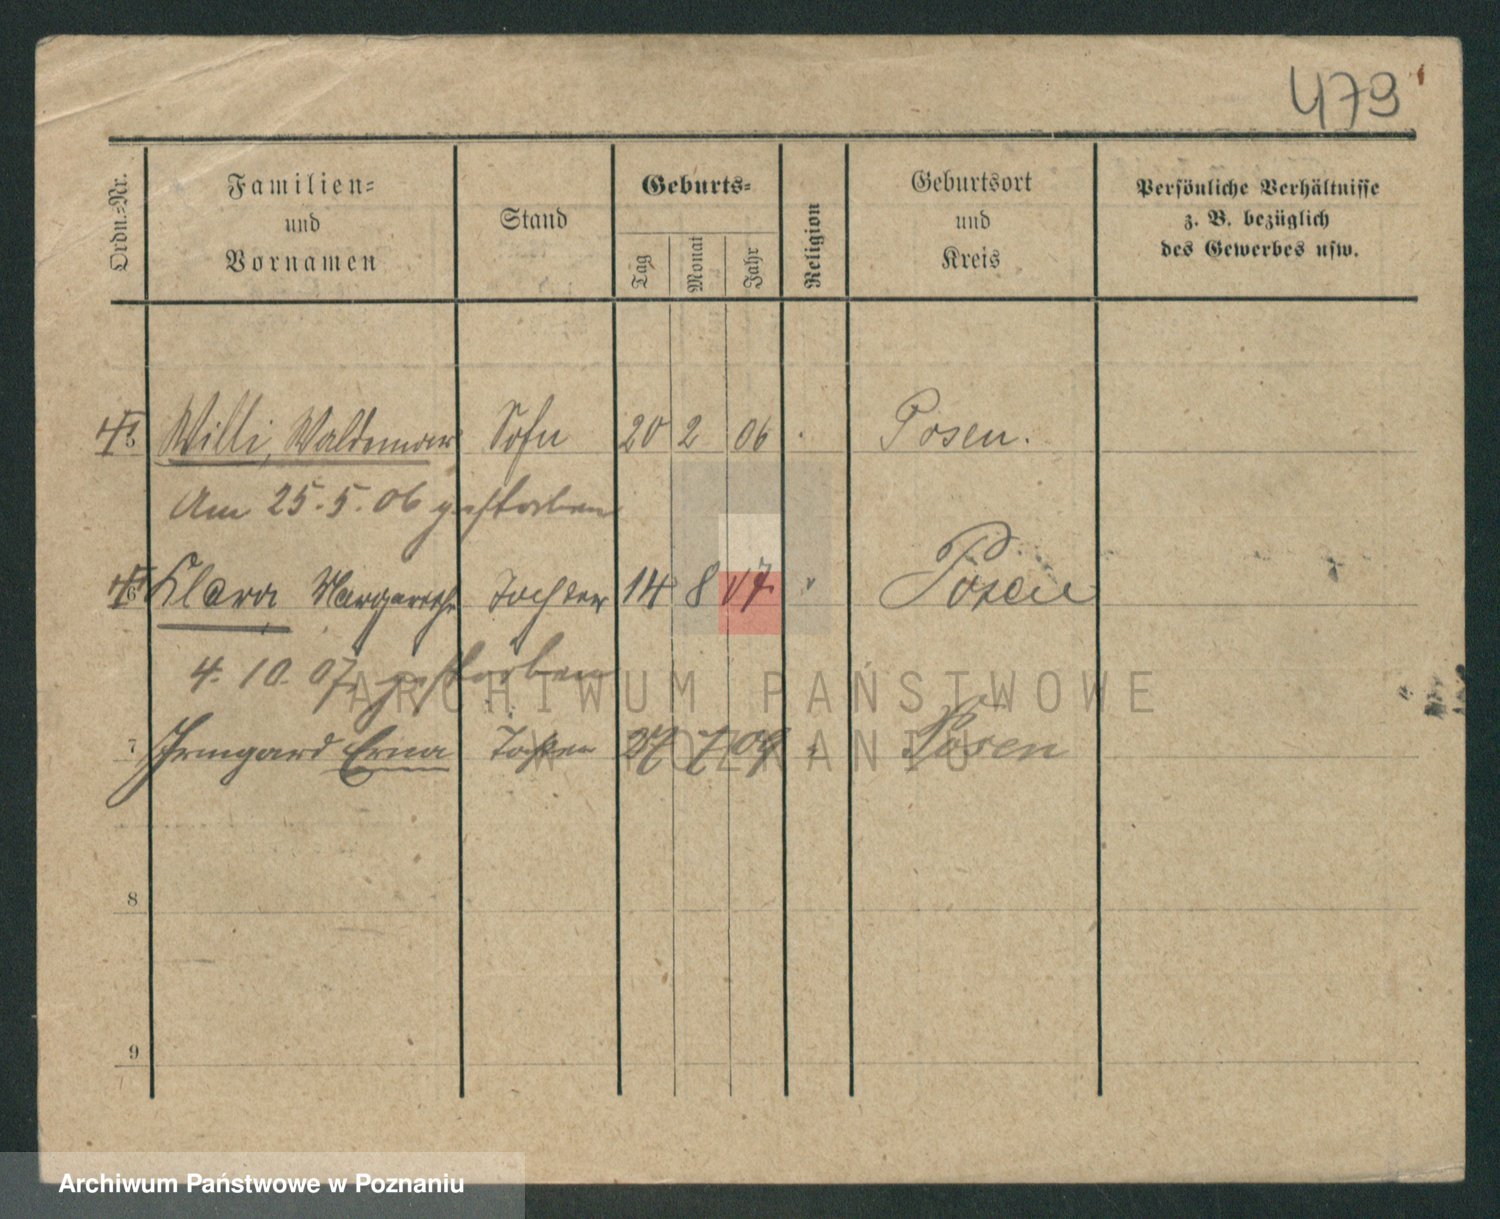 479
Ordn.=Nr. Familien= und Vornamen Stand Geburts= Tag Monat Jahr Religion Geburtsort und Kreis Persönliche Verhältnisse z. B. bezüglich des Gewerbes usw.
5 Willi, Waldemar Sohn 20 2 06 Posen.
Am 25.5.06 gestorben
6 Klara Margarethe Tochter 14 8 07 " Posen
4. 10. 07 gestorben
ARCHIWUM PAŃSTWOWE
7 Irmgard Erna Tochter 27 7 09 " Posen
W POZNANIU
8
9
Archiwum Państwowe w Poznaniu